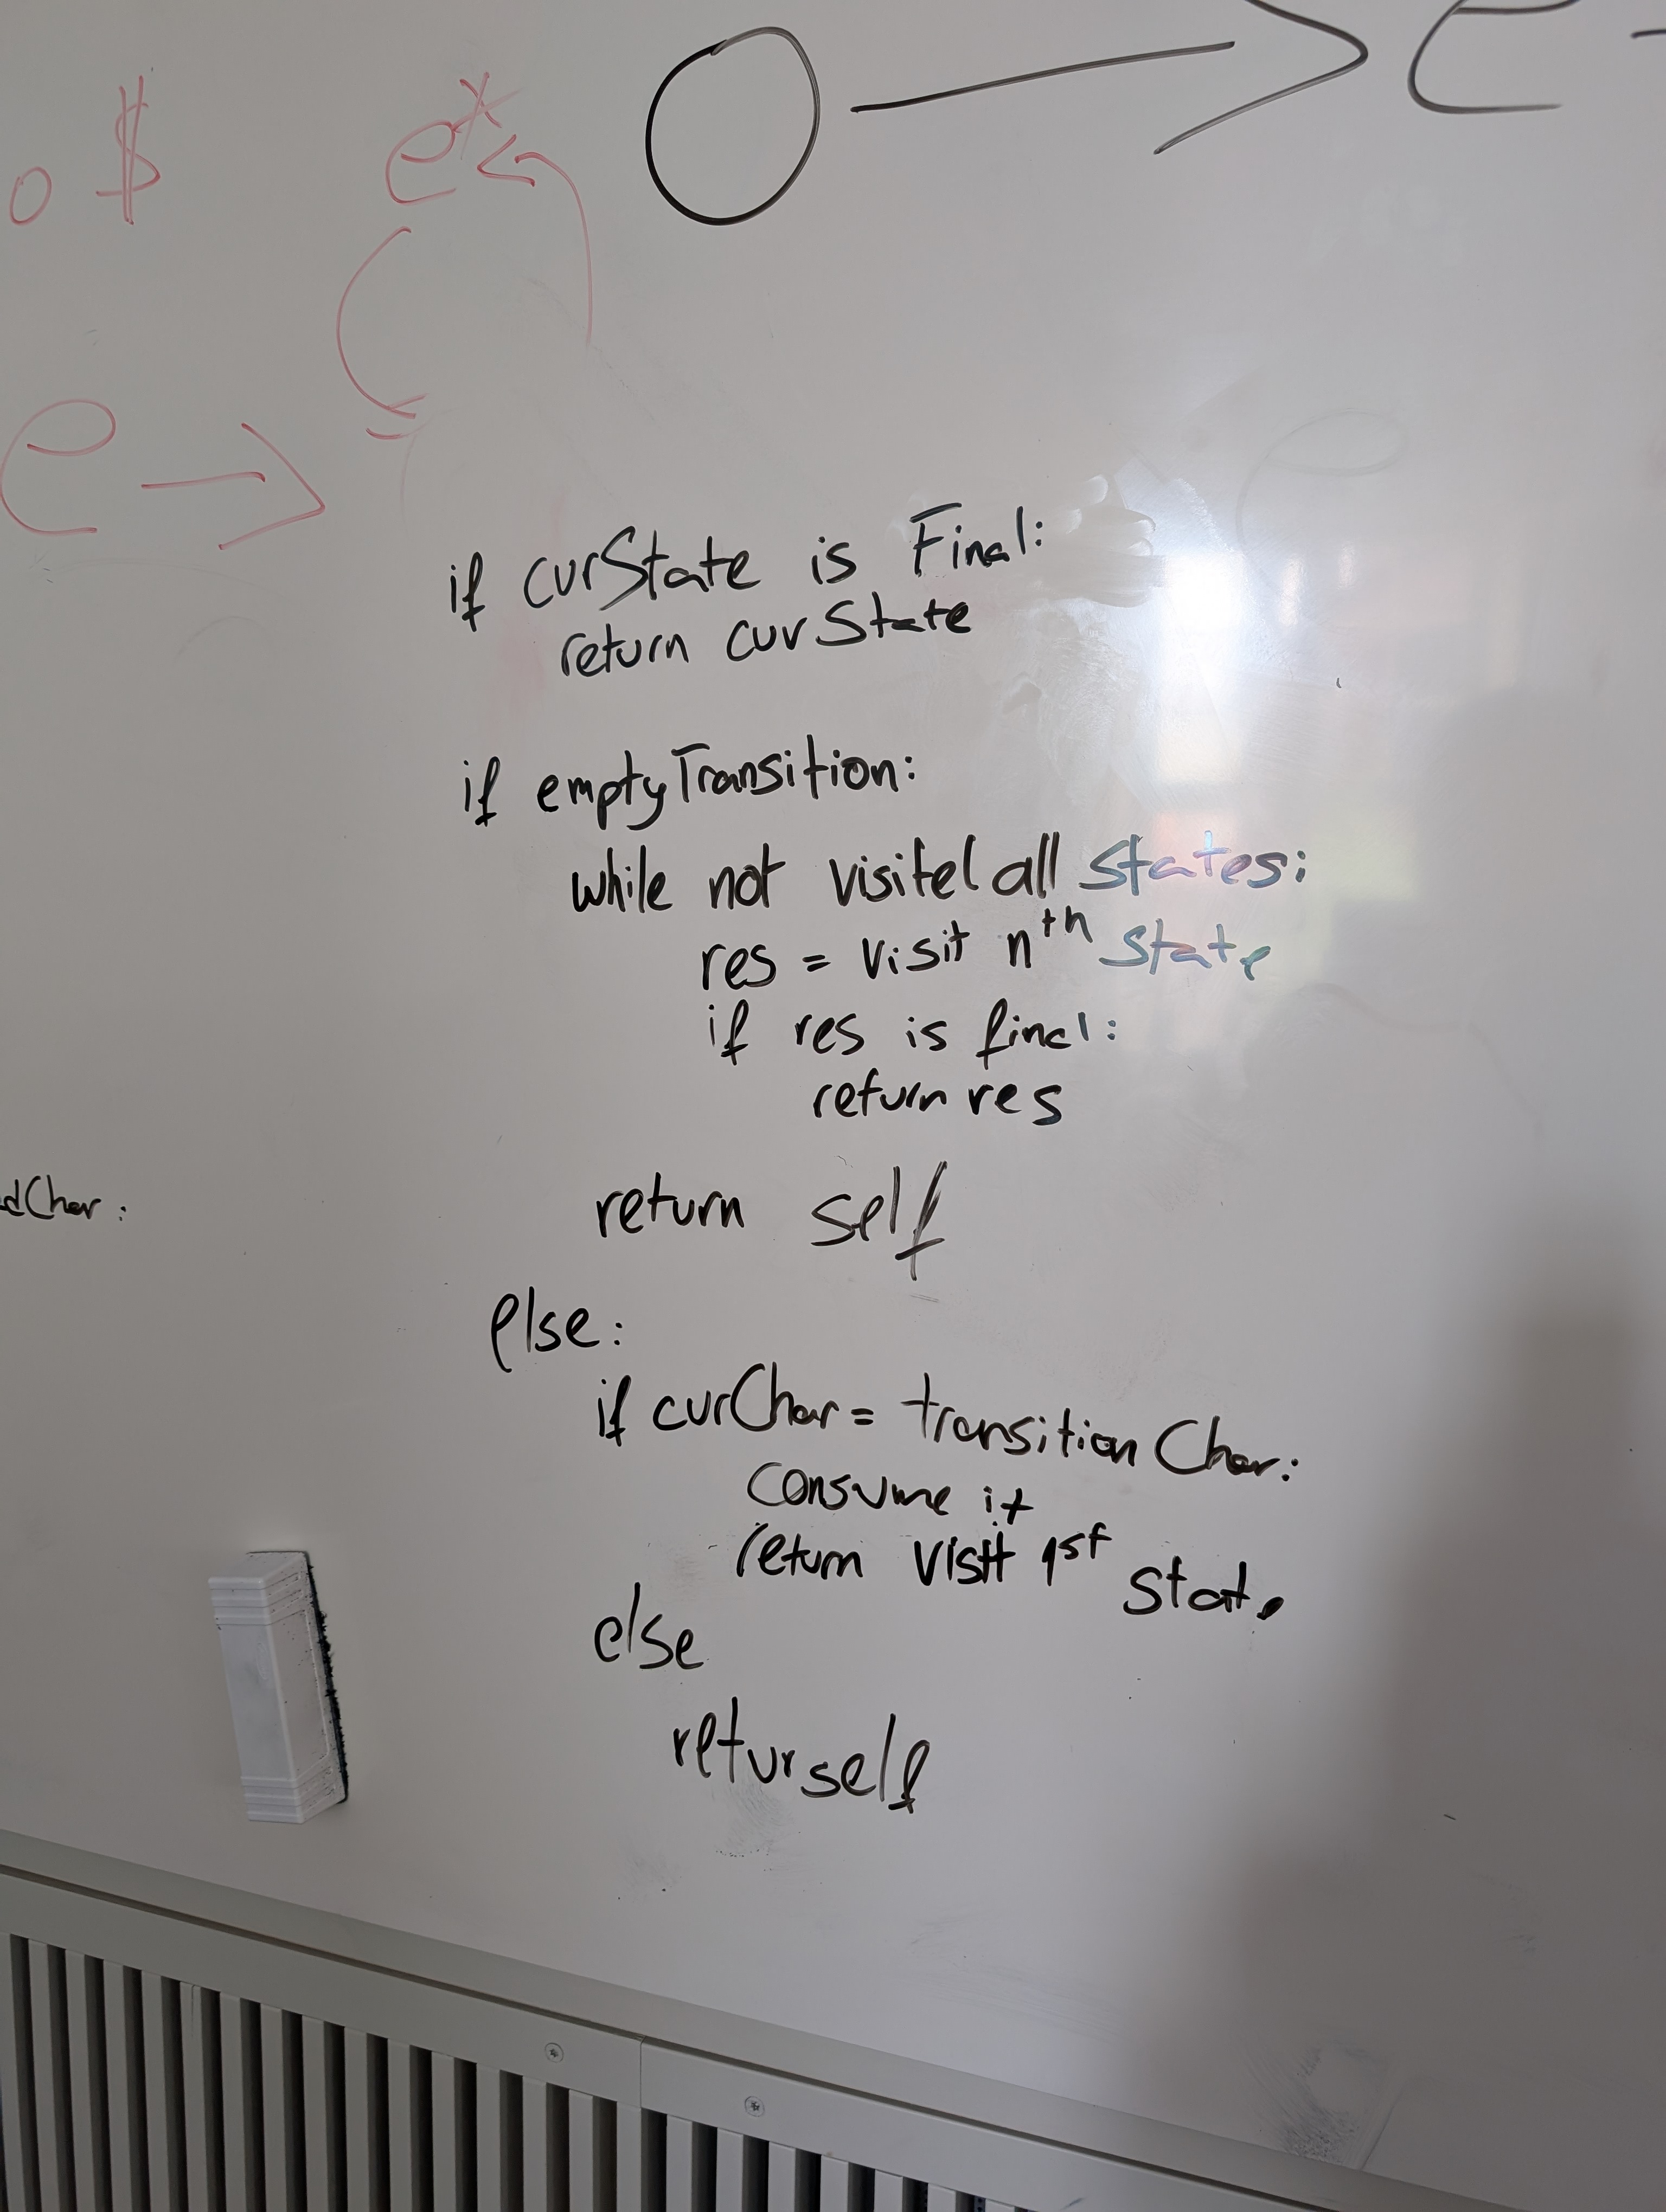 o $
e*
e
e →
if curState is Final:
return curState
if emptyTransition:
while not visited all states:
res = visit nth state
if res is final:
return res
dChar:
return self
else:
if curChar = transitionChar:
consume it
return visit 1st state
else
retur self